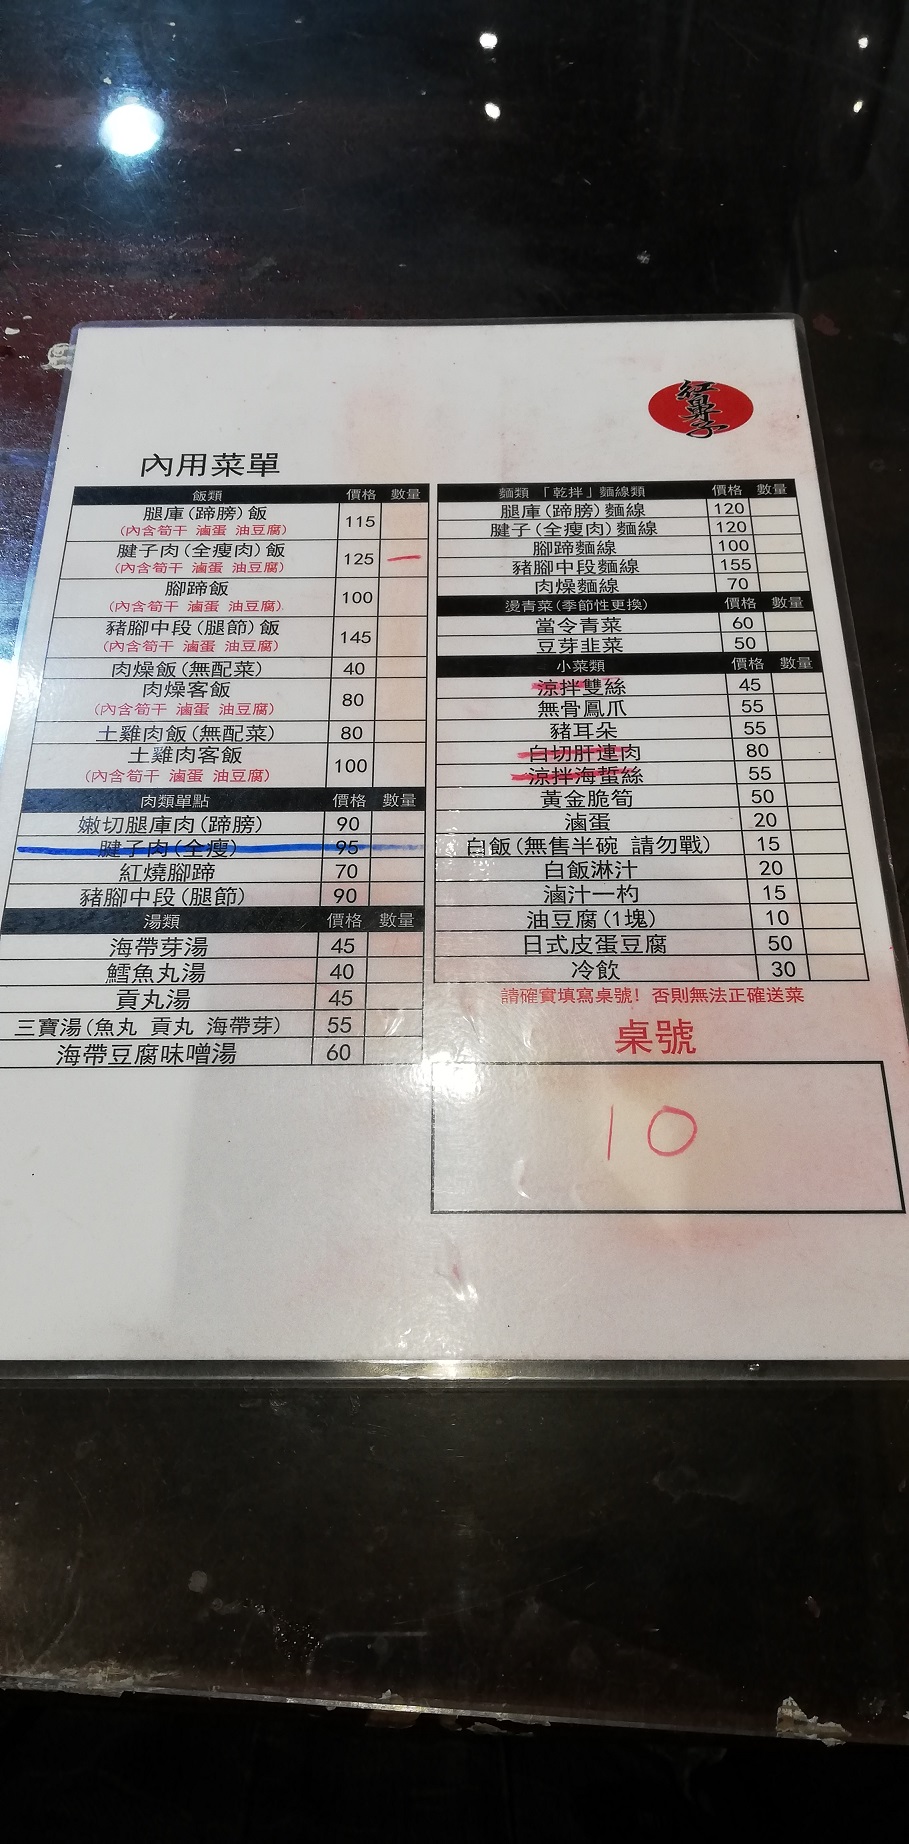 紅鼻子
內用菜單
飯類 價格 數量
腿庫(蹄膀)飯 115
(內含筍干 滷蛋 油豆腐)
腱子肉(全瘦肉)飯 125 一
(內含筍干 滷蛋 油豆腐)
腳蹄飯 100
(內含筍干 滷蛋 油豆腐)
豬腳中段(腿節)飯 145
(內含筍干 滷蛋 油豆腐)
肉燥飯(無配菜) 40
肉燥客飯 80
(內含筍干 滷蛋 油豆腐)
土雞肉飯(無配菜) 80
土雞肉客飯 100
(內含筍干 滷蛋 油豆腐)
肉類單點 價格 數量
嫩切腿庫肉(蹄膀) 90
腱子肉(全瘦) 95
紅燒腳蹄 70
豬腳中段(腿節) 90
湯類 價格 數量
海帶芽湯 45
鱈魚丸湯 40
貢丸湯 45
三寶湯(魚丸 貢丸 海帶芽) 55
海帶豆腐味噌湯 60
麵類 「乾拌」麵線類 價格 數量
腿庫(蹄膀)麵線 120
腱子(全瘦肉)麵線 120
腳蹄麵線 100
豬腳中段麵線 155
肉燥麵線 70
燙青菜(季節性更換) 價格 數量
當令青菜 60
豆芽韭菜 50
小菜類 價格 數量
涼拌雙絲 45
無骨鳳爪 55
豬耳朵 55
白切肝連肉 80
涼拌海蜇絲 55
黃金脆筍 50
滷蛋 20
白飯(無售半碗 請勿戰) 15
白飯淋汁 20
滷汁一杓 15
油豆腐(1塊) 10
日式皮蛋豆腐 50
冷飲 30
請確實填寫桌號! 否則無法正確送菜
桌號
10